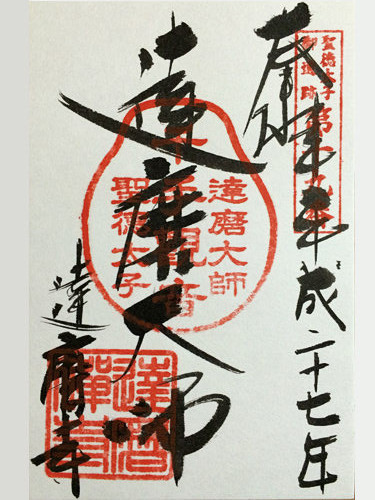 聖徳太子
御遺跡
奉拝 平成二十七年
達磨大師
達磨大師
千手観音
聖徳太子
達磨寺
達磨
禅寺